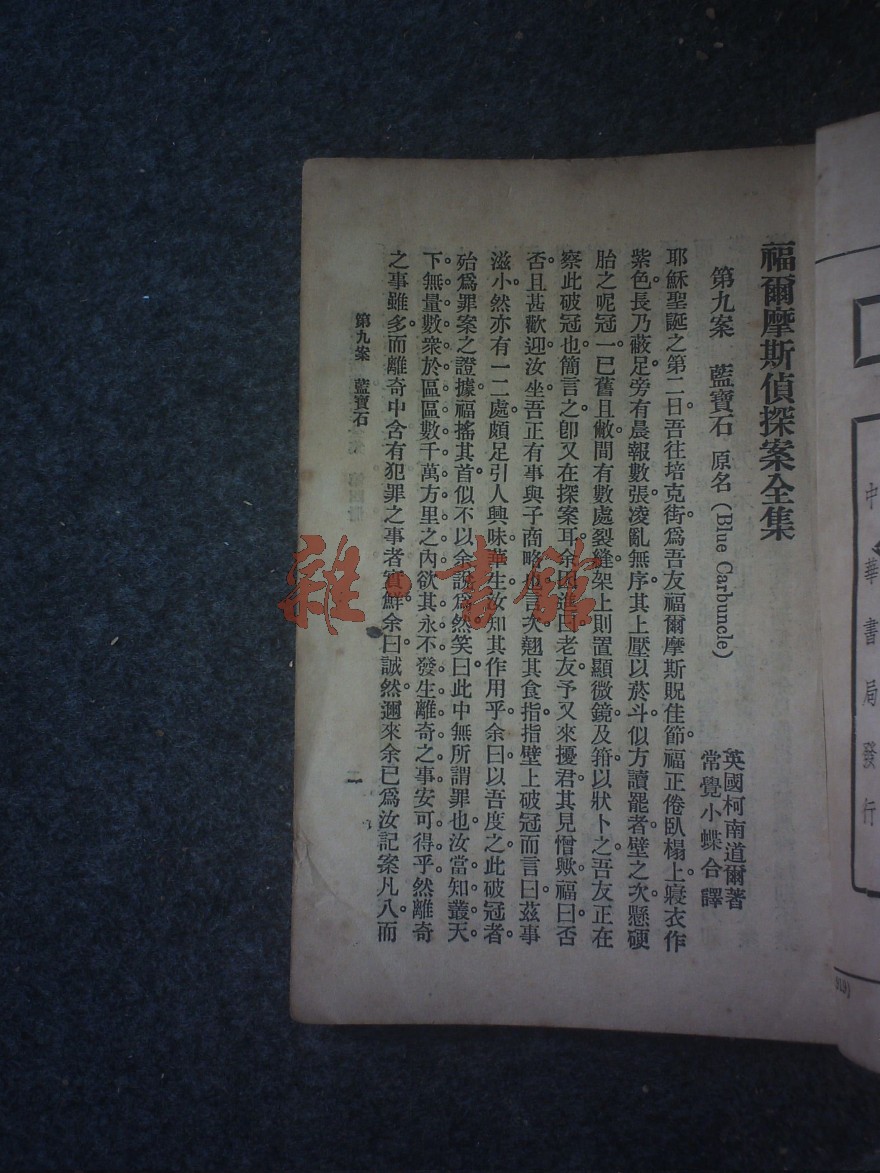 福爾摩斯偵探案全集
第九案　藍寶石　原名(Blue Carbuncle)
英國柯南道爾著
常覺小蝶合譯
耶穌聖誕之第二日。吾往培克街爲吾友福爾摩斯貺佳節。福正倦臥榻上。寢衣作
紫色。長乃蔽足。旁有晨報數張。凌亂無序。其上壓以菸斗。似方讀罷者。壁之次懸硬
胎之呢冠一。已舊且敝。間有數處裂縫。架上則置顯微鏡及箝。以狀卜之。吾友正在
察此破冠也。簡言之。卽又在探案耳。余因進曰。老友。予又來擾君。其見憎歟。福曰。否
否。且甚歡迎。汝坐。吾正有事與子商略也。言次翹其食指。指壁上破冠而言曰。茲事
滋小。然亦有一二處頗足引人興味。華生。汝知其作用乎。余曰。以吾度之。此破冠者。
殆爲罪案之證據。福搖其首。似不以余說爲然。笑曰。此中無所謂罪也。汝當知叢天
下無量數衆。於區區數千萬方里之內。欲其永不發生離奇之事。安可得乎。然離奇
之事雖多。而離奇中含有犯罪之事者實鮮。余曰。誠然。邇來余已爲汝記案凡八。而
第九案　藍寶石
一
雜·書館
中華書局發行